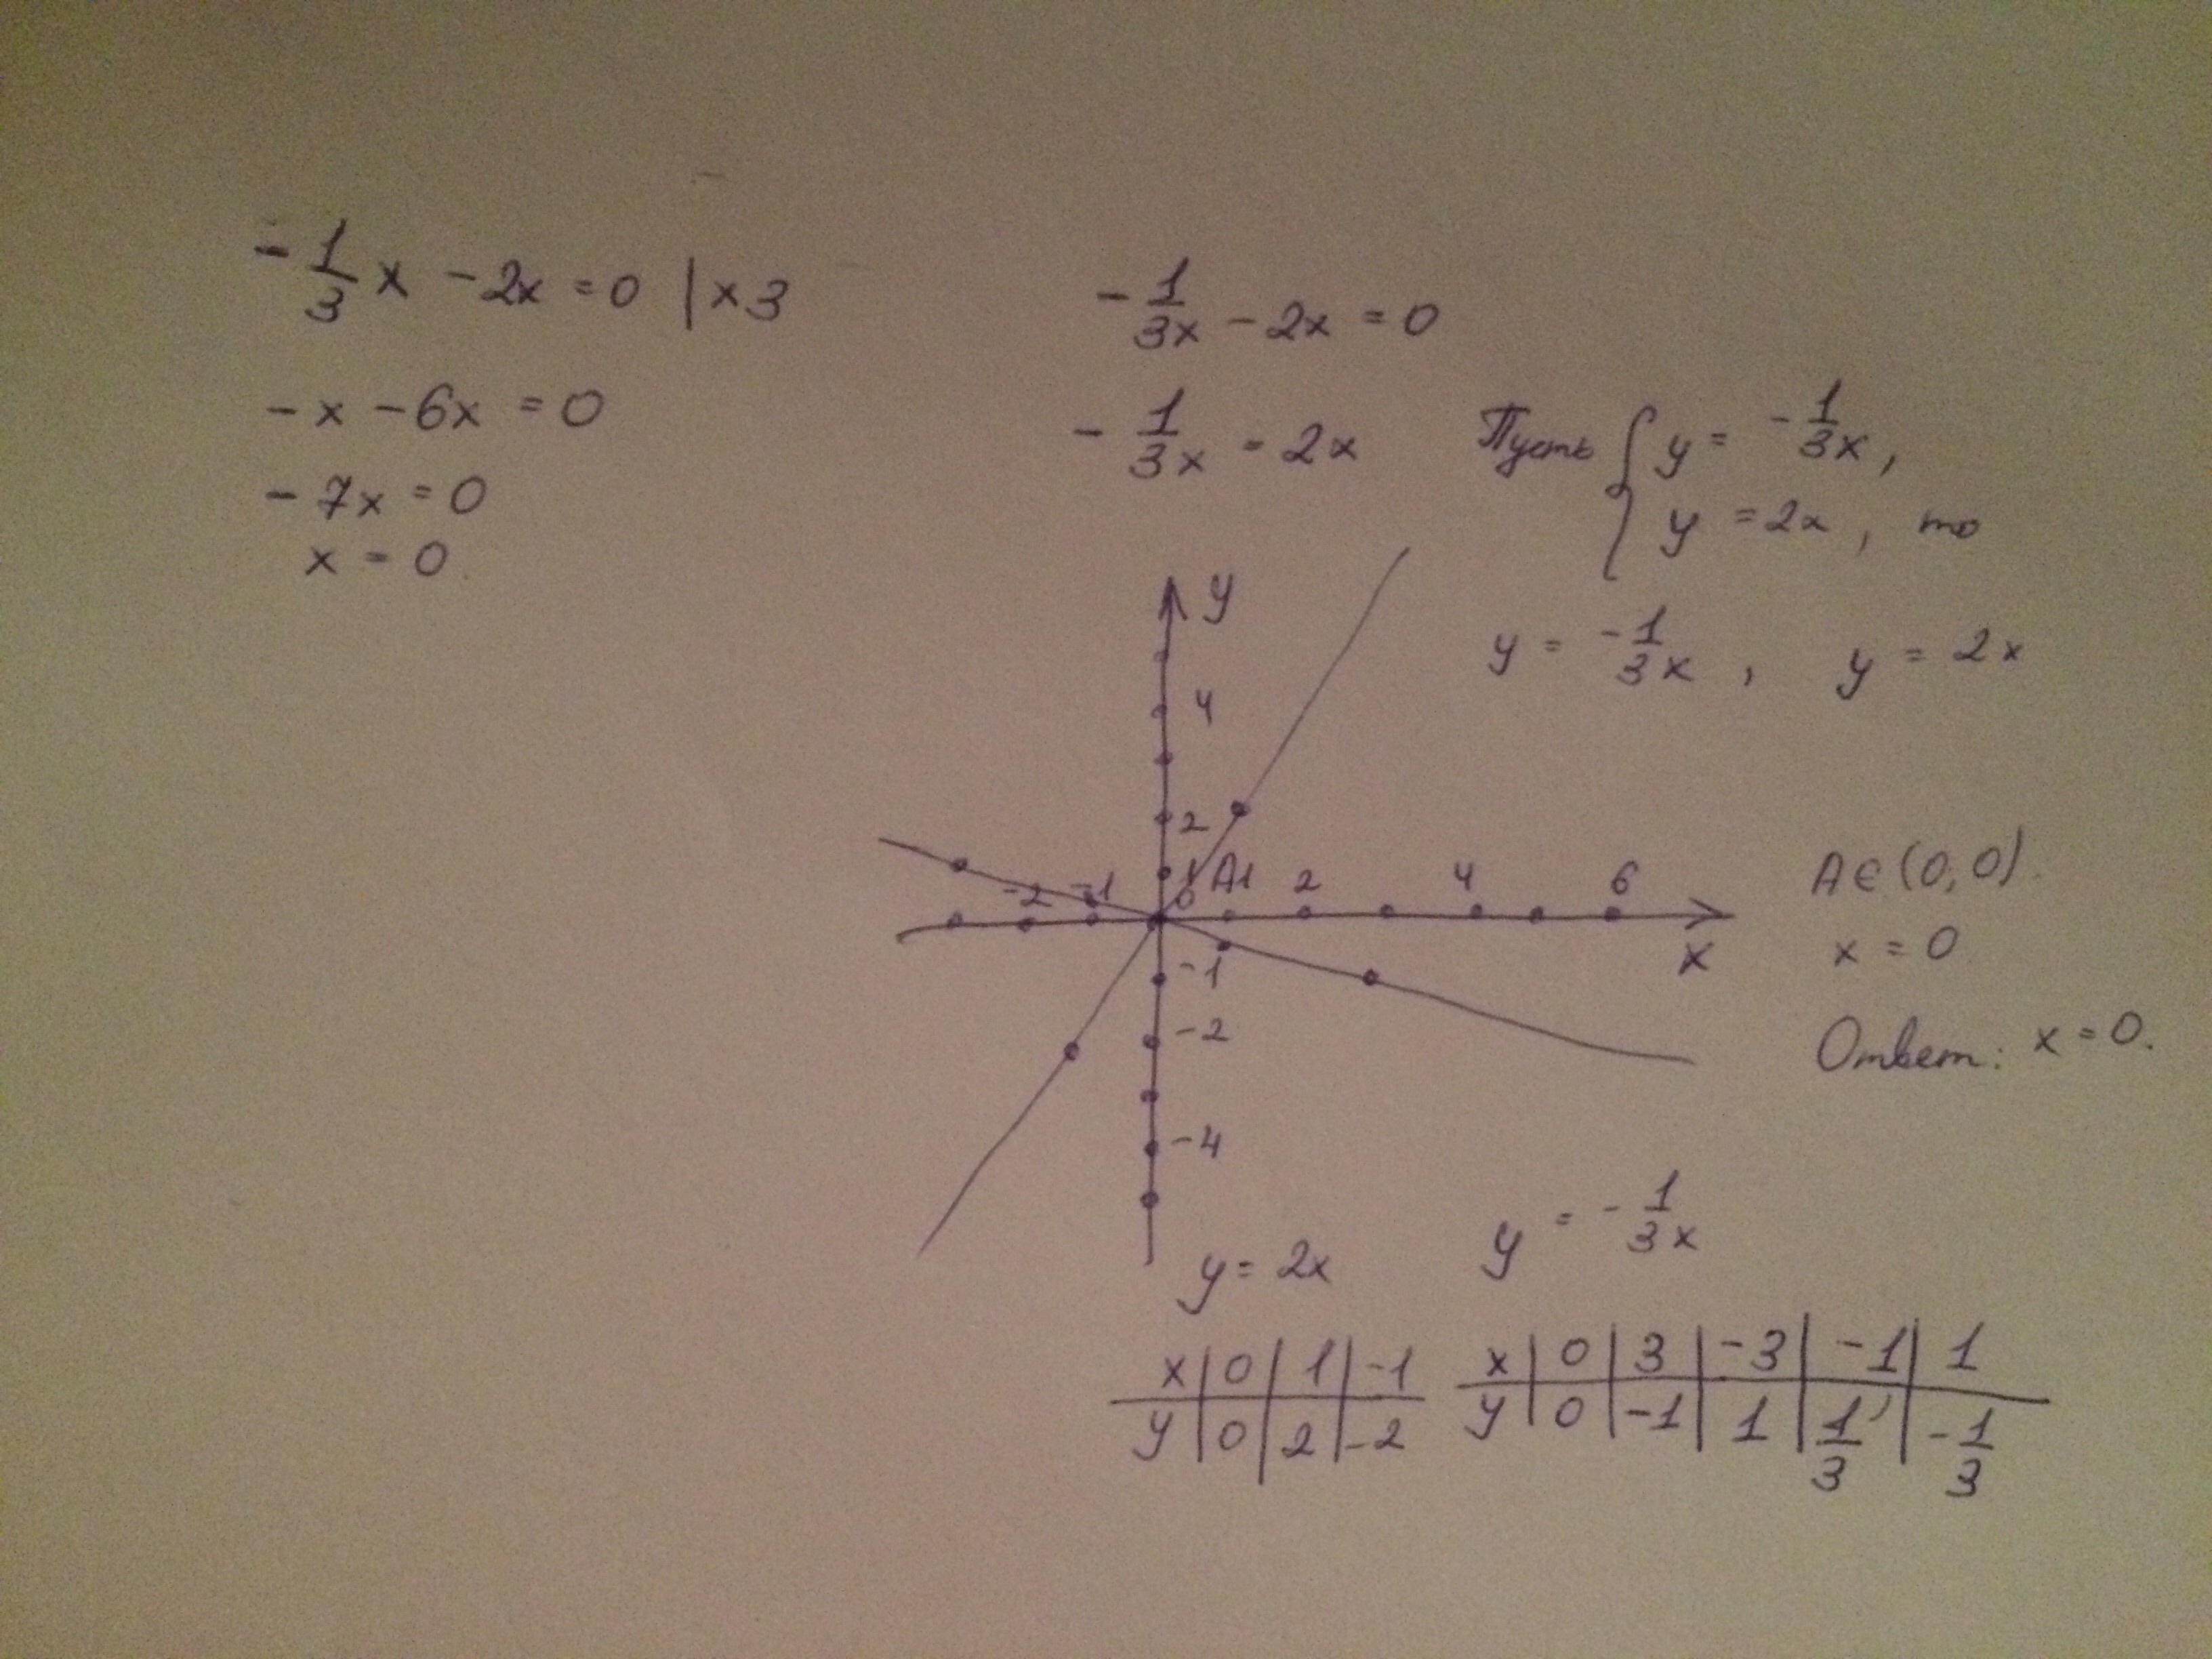 -1/3 x - 2x = 0 | × 3
- x - 6x = 0
- 7x = 0
x = 0.
-1/3x - 2x = 0
-1/3x = 2x
Пусть { y = -1/3x,
y = 2x, то
y = -1/3x, y = 2x
y
4
2
1 A 1 2 4 6
-2 -1 0
x
-1
-2
-4
A ∈ (0, 0).
x = 0
Ответ: x = 0.
y = 2x
x | 0 | 1 | -1
y | 0 | 2 | -2
y = -1/3x
x | 0 | 3 | -3 | -1 | 1
y | 0 | -1 | 1 | 1/3 | -1/3